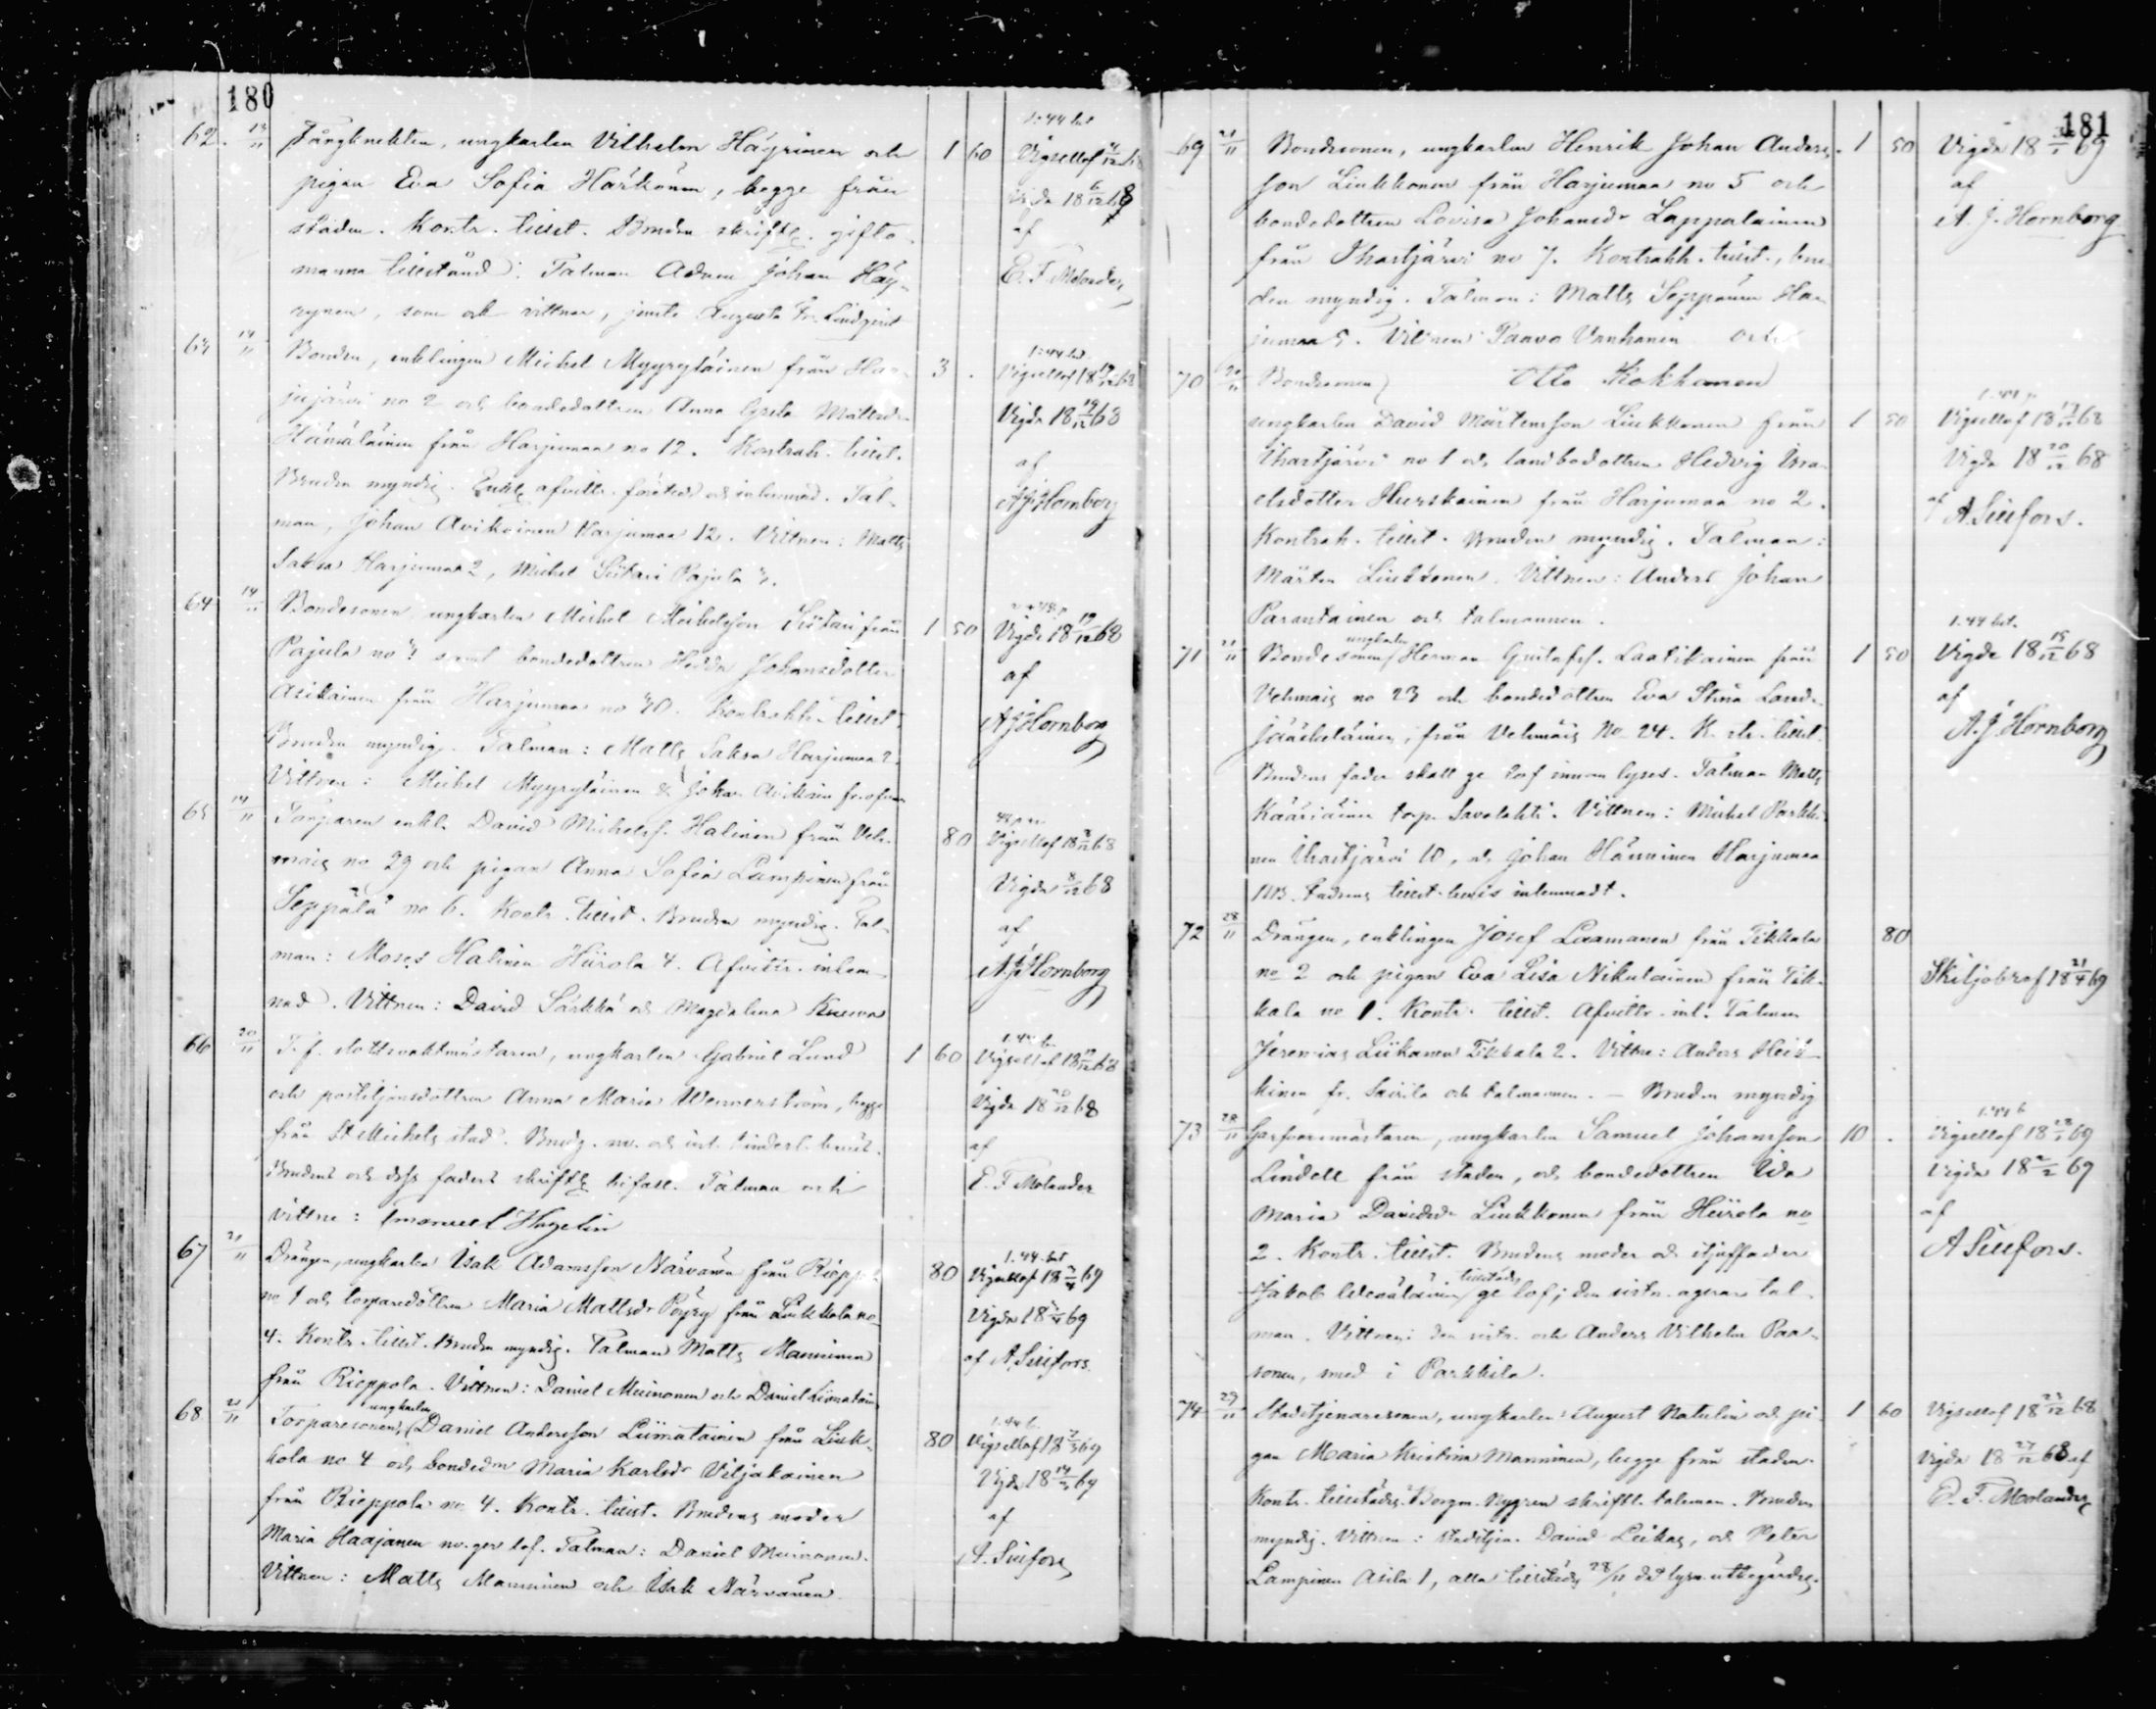 180
62. 13/11 Fångknekten, ungkarlen Vilhelm Häyrinen och 1 60
pigan Eva Sofia Härkönen, begge från
staden. Kontr. tillst. Bruden skriftl. gifto-
manna tillstånd. Talman Adam Johan Häy-
rynen, som och vittnar, jemte Augusta Lindqvist
1:44 bet
Vigsellof
Vigda 18 6/12 68
af
E. F. Molander
63 14/11 Bonden, enklingen Michel Myyryläinen från Har- 3 .
jujärvi no 2 och bondedottren Anna Greta Mattsdr
Hämäläinen från Harjumaa no 12. Kontrah. tillst.
Bruden myndig. afvittr. företedt och inlemnad. Tal-
man, Johan Avikainen Harjumaa 12. Vittnen: Matts
Saksa Harjumaa 2, Michel Siitari Pajula
1:44 bet.
Vigsellof 18 19/12 68
Vigda 18 19/12 68
af
A J Hornborg
64 14/11 Bondesonen ungkarlen Michel Michelsson Siitari från 1 50
Pajula no samt bondedottren Hedda Johansdotter
Avikainen från Harjumaa no Kontrakh. tillst.
Bruden myndig. Talman: Matts Saksa Harjumaa 2.
Vittnen: Michel Myyryläinen & Johan
Vigde 18 19/12 68
af
A J Hornborg
65 14/11 Torparen enkl. David Michelsf. Halinen från Veh- 80
mais no 29 och pigan Anna Sofia Lampinen från
Seppälä no 6. Kontr. tillst. Bruden myndig. Tal-
man: Moses Halinen Hiirola 4. Afvittr. inlem-
nad. Vittnen: David Särkkä och Magdalena
Vigsellof 18 8/12 68
Vigda 8/12 68
af
A J Hornborg
66 20/11 T. f. slottsvaktmästaren, ungkarlen Gabriel Lund 1 60
och postiljonsdottren Anna Maria Wennerström, begge
från St Michels stad.
Brudens och dess faders skriftl bifall. Talman och
vittne: Emanuel Hagelin
Vigsellof 18 19/12 68
Vigda 18 20/12 68
af
E. F. Molander
67 21/11 Drängen, ungkarlen Isak Adamsson Närvänen från Rieppo- 80
no 1 och torparedottren Maria Mattsdr Pöyry från Liukkola no
4. Kontr. tillst. Bruden myndig. Talman Matts Manninen
från Rieppola. Vittnen: Daniel Muinonen och Daniel Liimatain
1.44 bet
Vigsellof 18 69
Vigda 18 69
af A. Siufors
68 21/11 Torparesonen, ungkarlen Daniel Andersson Liimatainen från Liuk- 80
kola no 4 och bondedn Maria Karlsdr Viljakainen
från Rieppola no 4. Kontr. tillst. Brudens moder
Maria Haajanen nv. ger lof. Talman: Daniel Muinonen.
Vittnen: Matts Manninen och Isak Närvänen
Vigsellof 18 69
Vigda 18 14/ 69
af
A. Siufors
181
69 21/11 Bondesonen, ungkarlen Henrik Johan Anders- 1 50
son Liukkonen från Harjumaa no 5 och
bondedottren Lovisa Johansdr Lappalainen
från Ihastjärvi no 7. Kontrakh. tillst., bru-
den myndig. Talman: Matts Seppänen Har-
jumaa 5. Vittnen: Paavo Vanhanen och
Otto Kokkonen
Vigda 18 69
af
A. J. Hornborg
70 20/11 Bondesonen
ungkarlen David Mårtensson Liukkonen från 1 50
Ihastjärvi no 1 och landbodottren Hedvig Isra-
elsdotter Hurskainen från Harjumaa no 2.
Kontrah. tillst. Bruden myndig. Talman:
Mårten Liukkonen. Vittnen: Anders Johan
Parantainen och talmannen.
Vigsellof 18 68
Vigda 18 20/12 68
af A. Siufors.
71 21/11 Bondesonen ungkarlen Herman Gustafsf. Laatikainen från 1 50
Vehmais no 23 och bondedottren Eva Stina
Jääskeläinen, från Vehmais No 24. K. tillst.
Brudens fader skall ge lof innan lyses. Talman Matts
Kääriäinen torp. Savolahti. Vittnen: Michel Parkki-
nen Ihastjärvi 10, och Johan Hänninen Harjumaa
NB. Fadrens tillst. bevis inlemnadt.
1.44 bet.
Vigde 18 15/12 68
af
A. J. Hornborg
72 28/11 Drängen, enklingen Josef Laamanen från Tikkala 80
no 2 och pigan Eva Lisa Nikulainen från Tik-
kala no 1. Kontr. tillst. Afvittr. inl. Talman
Jeremias Liikanen Tikkala 2. Vittne: Anders Heis-
kinen fr. Sairila och talmannen. — Bruden myndig
Skiljobref 18 21/4 69
73 28/11 Garfvaremästaren, ungkarlen Samuel Johansson 10 .
Lindell från staden, och bondedottren Ida
Maria Davidsdr Liukkonen från Hiirola no
2. Kontr. tillst. Brudens moder och stjuffader
Jakob tillstädes ge lof; den sistn. agerar tal-
man. Vittnen: den sistn. och Anders Vilhelm Paa-
sonen, smed i Parkkila.
Vigsellof 18 69
Vigda 18 69
af
A Siufors.
74 29/11 Stadstjenaresonen, ungkarlen August Natulin och pi- 1 60
gan Maria Kristina Manninen, begge från staden.
Kontr. tillstädes. Borgm. Nygren skriftl. talman. Bruden
myndig. Vittnen: stadstjen. David Leikas, och Peter
Lampinen Asila 1, alla tillstädes 28/11 då lysn. uttbegärdes.
Vigsellof 18 23/12 68
Vigda 18 27/12 68 af
E. F. Molander